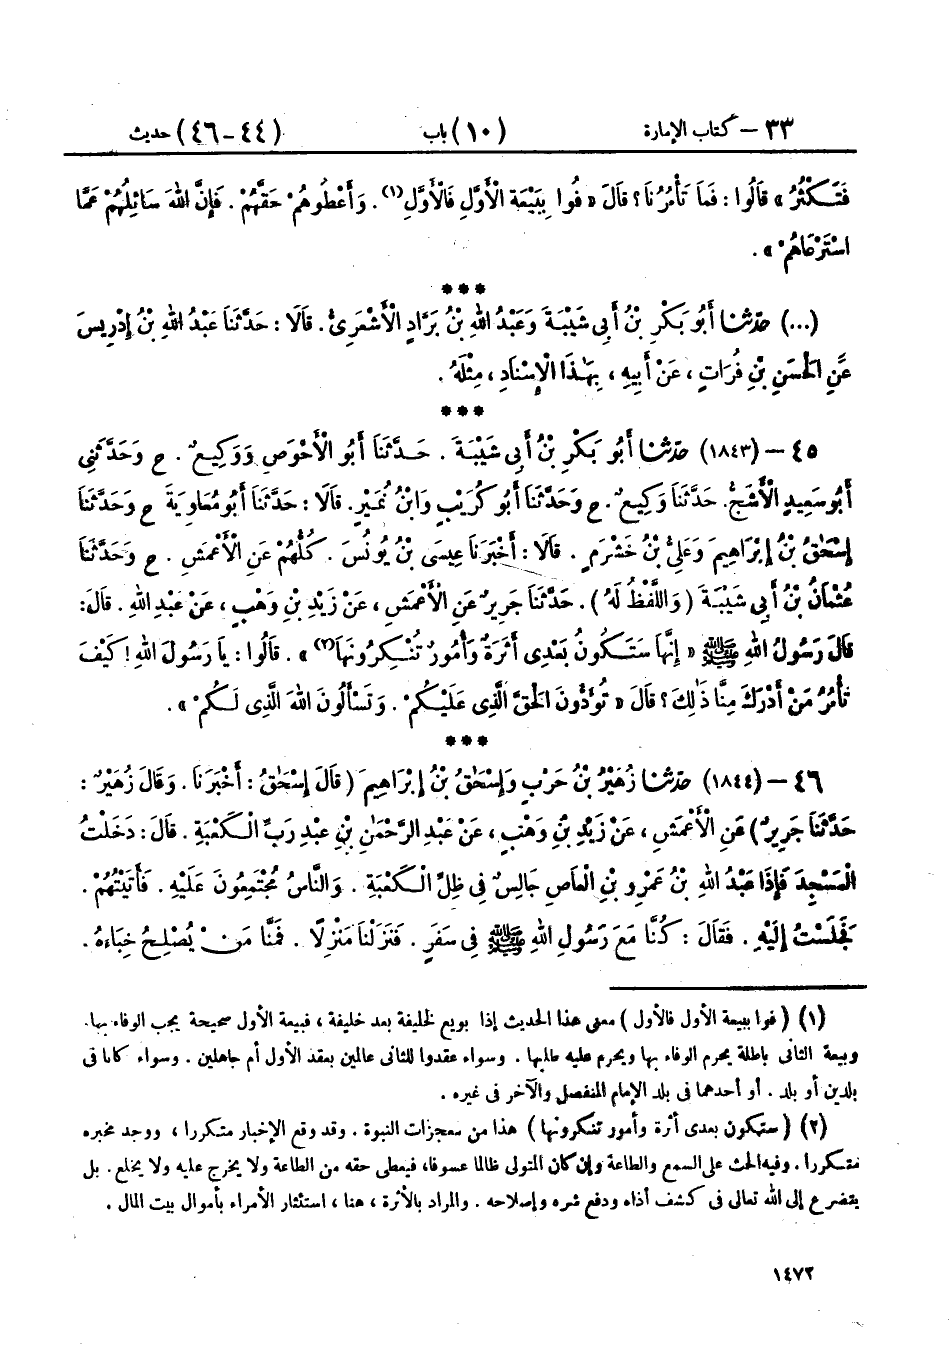 ٣٣ – كتاب الإمارة (١٠) باب (٤٤-٤٦) حديث
فَتَكْثُرُ » قَالُوا : فَمَا تَأْمُرُنَا ؟ قَالَ « فُوا بِبَيْعَةِ الْأَوَّلِ فَالْأَوَّلِ(١) . وَأَعْطُوهُمْ حَقَّهُمْ . فَإِنَّ اللهَ سَائِلُهُمْ عَمَّا
اسْتَرْعَاهُمْ » .
***
(...) حَدَّثَنَا أَبُو بَكْرِ بْنُ أَبِي شَيْبَةَ وَعَبْدُ اللهِ بْنُ بَرَّادٍ الْأَشْعَرِيُّ . قَالَا : حَدَّثَنَا عَبْدُ اللهِ بْنُ إِدْرِيسَ
عَنِ الْحَسَنِ بْنِ فُرَاتٍ ، عَنْ أَبِيهِ ، بِهَذَا الْإِسْنَادِ ، مِثْلَهُ .
***
٤٥ – (١٨٤٣) حَدَّثَنَا أَبُو بَكْرِ بْنُ أَبِي شَيْبَةَ . حَدَّثَنَا أَبُو الْأَحْوَصِ وَوَكِيعٌ . ح وَحَدَّثَنِي
أَبُو سَعِيدٍ الْأَشَجُّ . حَدَّثَنَا وَكِيعٌ . ح وَحَدَّثَنَا أَبُو كُرَيْبٍ وَابْنُ نُمَيْرٍ . قَالَا : حَدَّثَنَا أَبُو مُعَاوِيَةَ ح وَحَدَّثَنَا
إِسْحَاقُ بْنُ إِبْرَاهِيمَ وَعَلِيُّ بْنُ خَشْرَمٍ . قَالَا : أَخْبَرَنَا عِيسَى بْنُ يُونُسَ . كُلُّهُمْ عَنِ الْأَعْمَشِ . ح وَحَدَّثَنَا
عُثْمَانُ بْنُ أَبِي شَيْبَةَ ( وَاللَّفْظُ لَهُ ) . حَدَّثَنَا جَرِيرٌ عَنِ الْأَعْمَشِ ، عَنْ زَيْدِ بْنِ وَهْبٍ ، عَنْ عَبْدِ اللهِ . قَالَ :
قَالَ رَسُولُ اللهِ ﷺ « إِنَّهَا سَتَكُونُ بَعْدِي أَثَرَةٌ وَأُمُورٌ تُنْكِرُونَهَا(٢) » . قَالُوا : يَا رَسُولَ اللهِ ! كَيْفَ
تَأْمُرُ مَنْ أَدْرَكَ مِنَّا ذَلِكَ ؟ قَالَ « تُؤَدُّونَ الْحَقَّ الَّذِي عَلَيْكُمْ . وَتَسْأَلُونَ اللهَ الَّذِي لَكُمْ » .
***
٤٦ – (١٨٤٤) حَدَّثَنَا زُهَيْرُ بْنُ حَرْبٍ وَإِسْحَاقُ بْنُ إِبْرَاهِيمَ ( قَالَ إِسْحَاقُ : أَخْبَرَنَا . وَقَالَ زُهَيْرٌ :
حَدَّثَنَا جَرِيرٌ ) عَنِ الْأَعْمَشِ ، عَنْ زَيْدِ بْنِ وَهْبٍ ، عَنْ عَبْدِ الرَّحْمَنِ بْنِ عَبْدِ رَبِّ الْكَعْبَةِ . قَالَ : دَخَلْتُ
الْمَسْجِدَ فَإِذَا عَبْدُ اللهِ بْنُ عَمْرِو بْنِ الْعَاصِ جَالِسٌ فِي ظِلِّ الْكَعْبَةِ . وَالنَّاسُ مُجْتَمِعُونَ عَلَيْهِ . فَأَتَيْتُهُمْ .
فَجَلَسْتُ إِلَيْهِ . فَقَالَ : كُنَّا مَعَ رَسُولِ اللهِ ﷺ فِي سَفَرٍ . فَنَزَلْنَا مَنْزِلًا . فَمِنَّا مَنْ يُصْلِحُ خِبَاءَهُ .
(١) ( فوا ببيعة الأول فالأول ) معنى هذا الحديث إذا بويع لخليفة بعد خليفة ، فبيعة الأول صحيحة يجب الوفاء بها.
وبيعة الثانى باطلة يحرم الوفاء بها ويحرم عليه طلبها . وسواء عقدوا للثانى عالمين بعقد الأول أم جاهلين . وسواء كانا فى
بلدين أو بلد . أو أحدهما فى بلد الإمام المنفصل والآخر فى غيره .
(٢) ( ستكون بعدى أثرة وأمور تنكرونها ) هذا من معجزات النبوة . وقد وقع الإخبار متكررا ، ووجد مخبره
متكررا . وفيه الحث على السمع والطاعة وإن كان المتولى ظالما عسوفا، فيعطى حقه من الطاعة ولا يخرج عليه ولا يخلع . بل
يتضرع إلى الله تعالى فى كشف أذاه ودفع شره وإصلاحه . والمراد بالأثرة ، هنا ، استئثار الأمراء بأموال بيت المال .
١٤٧٢